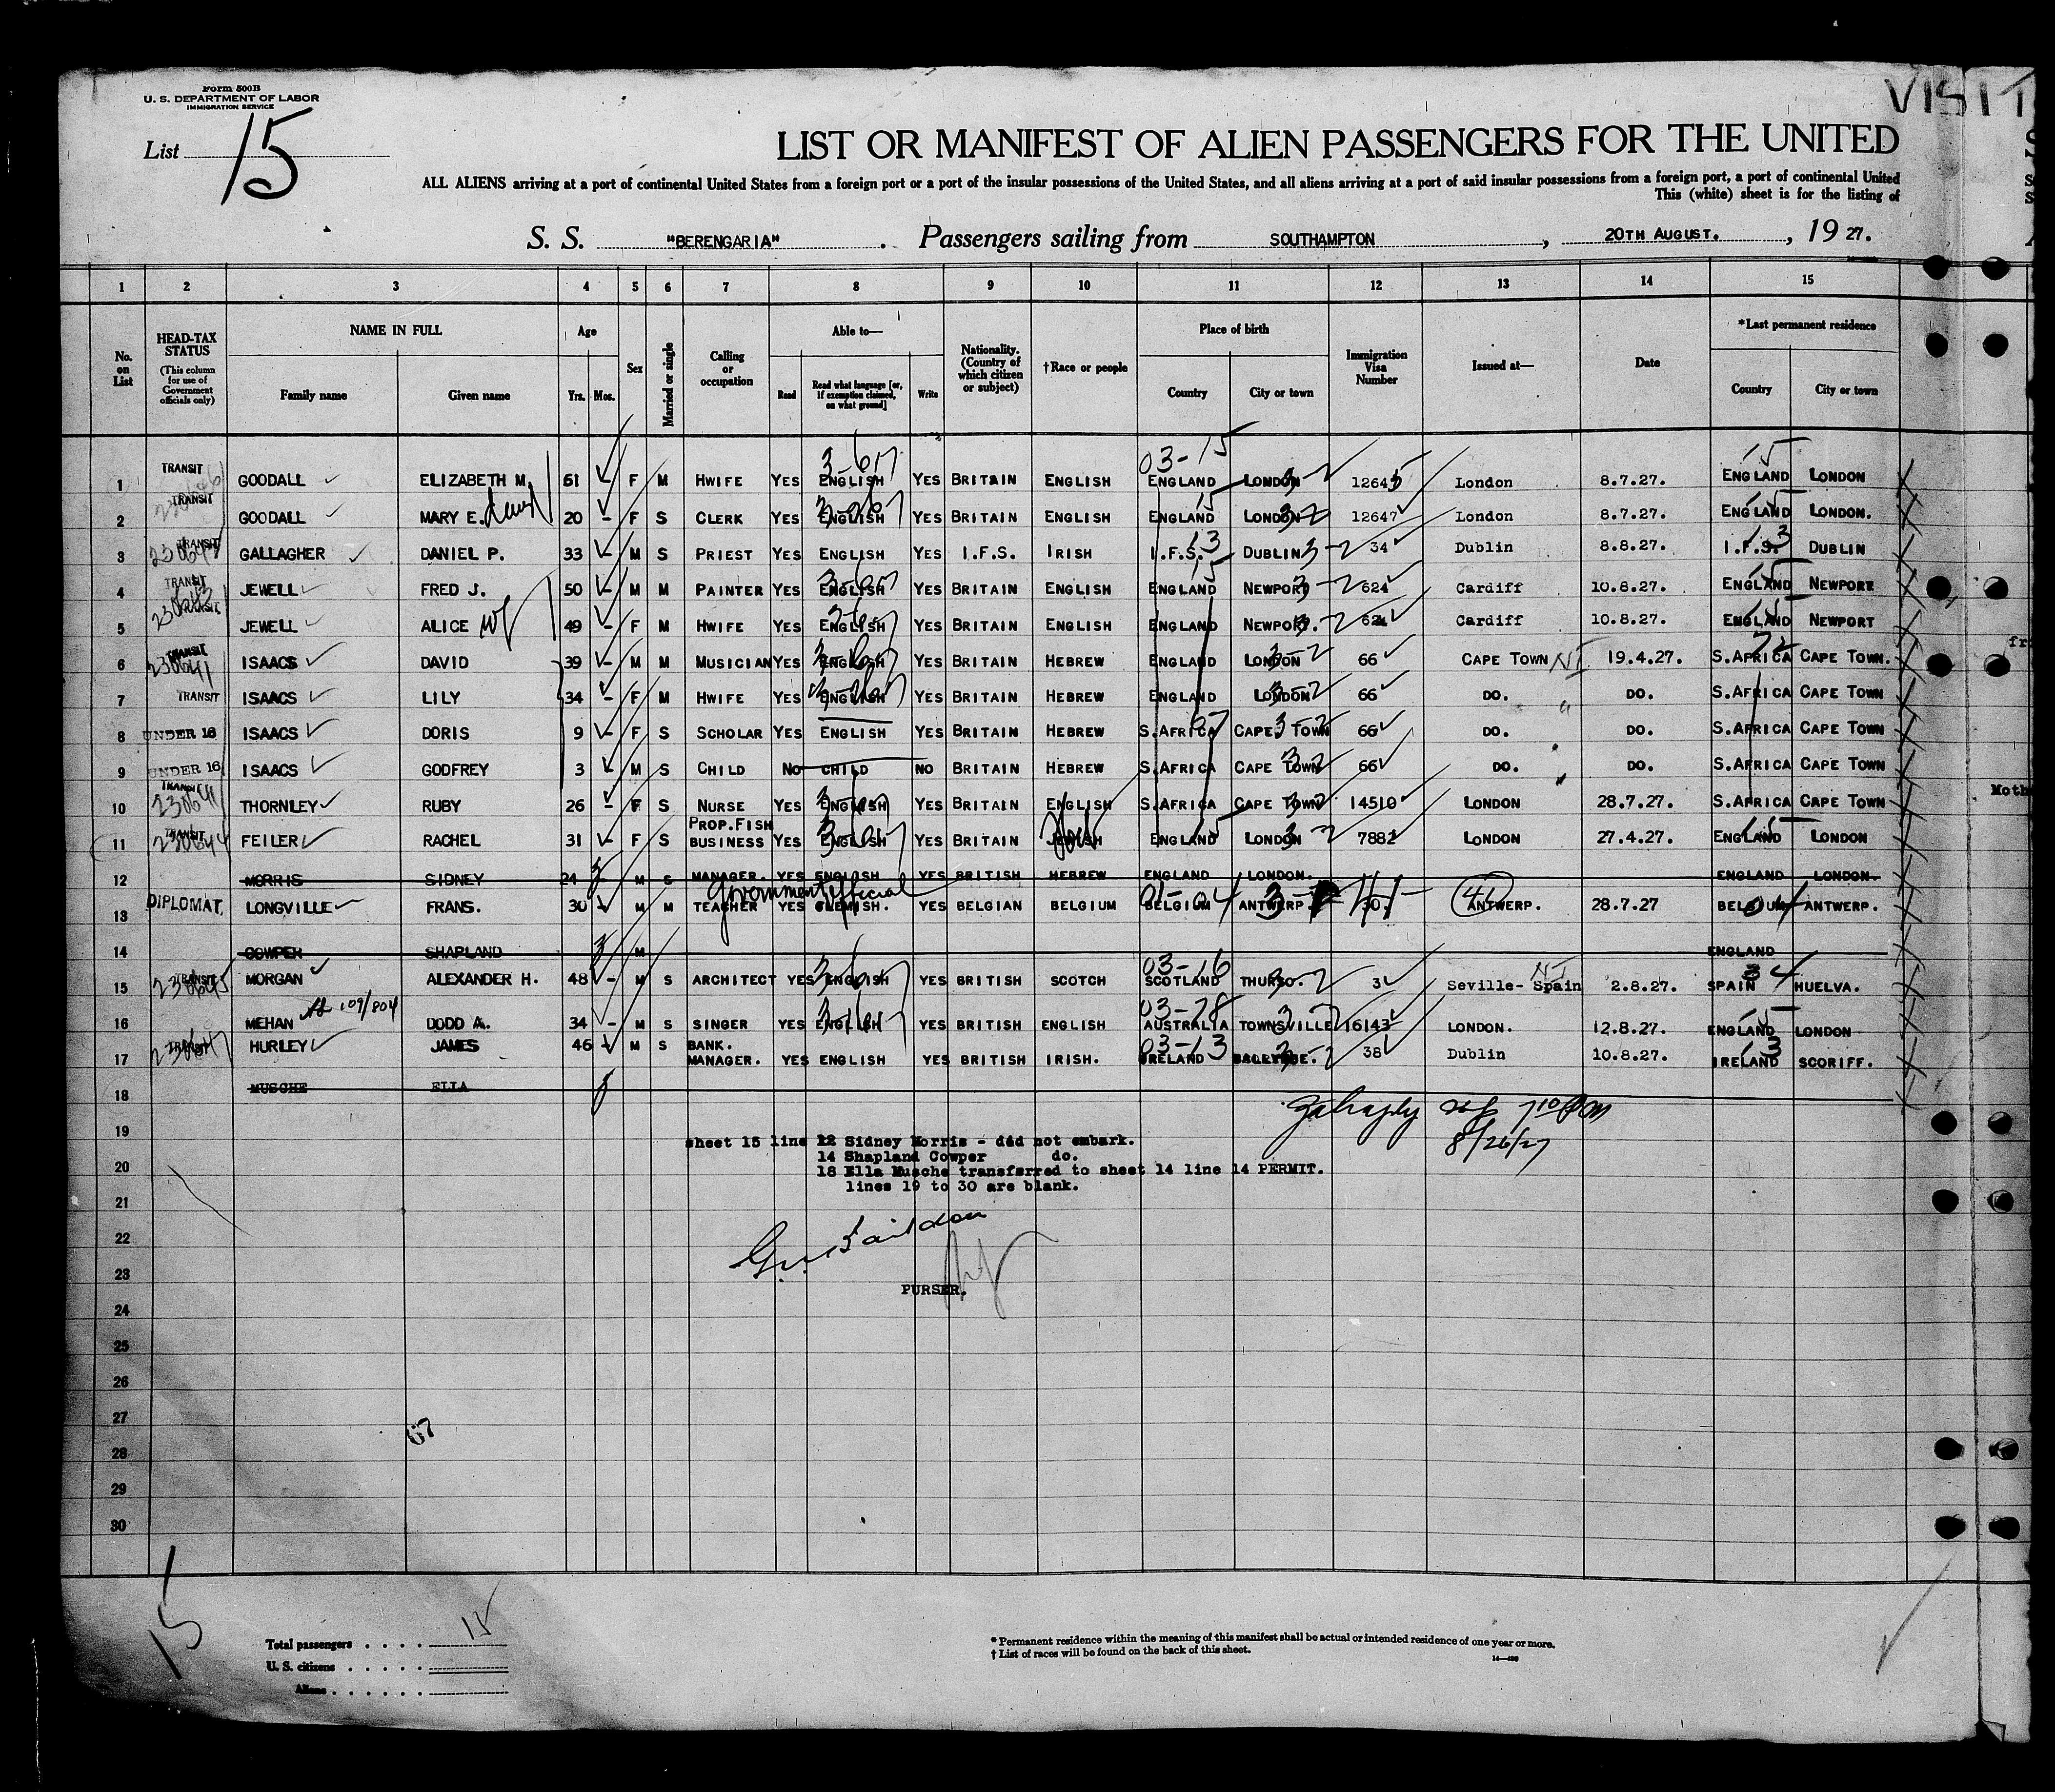 Form 500B
U. S. DEPARTMENT OF LABOR
IMMIGRATION SERVICE
VISIT
List 15
LIST OR MANIFEST OF ALIEN PASSENGERS FOR THE UNITED
ALL ALIENS arriving at a port of continental United States from a foreign port or a port of the insular possessions of the United States, and all aliens arriving at a port of said insular possessions from a foreign port, a port of continental United
This (white) sheet is for the listing of
S. S. "BERENGARIA" . Passengers sailing from SOUTHAMPTON , 20TH AUGUST. , 19 27.
1 2 3 4 5 6 7 8 9 10 11 12 13 14 15
No. on List HEAD-TAX STATUS (This column for use of Government officials only) NAME IN FULL Family name Given name Age Yrs. Mos. Sex Married or single Calling or occupation Able to— Read Read what language [or, if exemption claimed, on what ground] Write Nationality. (Country of which citizen or subject) †Race or people Place of birth Country City or town Immigration Visa Number Issued at— Date *Last permanent residence Country City or town
1 TRANSIT GOODALL ELIZABETH M. 61 F M HWIFE YES ENGLISH YES BRITAIN ENGLISH ENGLAND LONDON 12645 London 8.7.27. ENGLAND LONDON
2 TRANSIT GOODALL MARY E. 20 - F S CLERK YES ENGLISH YES BRITAIN ENGLISH ENGLAND LONDON 12647 London 8.7.27. ENGLAND LONDON.
3 TRANSIT GALLAGHER DANIEL P. 33 - M S PRIEST YES ENGLISH YES I.F.S. IRISH I.F.S. DUBLIN 34 Dublin 8.8.27. I.F.S. DUBLIN
4 TRANSIT JEWELL FRED J. 50 - M M PAINTER YES ENGLISH YES BRITAIN ENGLISH ENGLAND NEWPORT 624 Cardiff 10.8.27. ENGLAND NEWPORT
5 TRANSIT JEWELL ALICE wf 49 - F M HWIFE YES ENGLISH YES BRITAIN ENGLISH ENGLAND NEWPORT. 624 Cardiff 10.8.27. ENGLAND NEWPORT
6 TRANSIT ISAACS DAVID 39 - M M MUSICIAN YES ENGLISH YES BRITAIN HEBREW ENGLAND LONDON 66 CAPE TOWN 19.4.27. S.AFRICA CAPE TOWN.
7 TRANSIT ISAACS LILY 34 - F M HWIFE YES ENGLISH YES BRITAIN HEBREW ENGLAND LONDON 66 DO. DO. S.AFRICA CAPE TOWN
8 UNDER 16 ISAACS DORIS 9 - F S SCHOLAR YES ENGLISH YES BRITAIN HEBREW S.AFRICA CAPE TOWN 66 DO. DO. S.AFRICA CAPE TOWN
9 UNDER 16 ISAACS GODFREY 3 - M S CHILD NO CHILD NO BRITAIN HEBREW S.AFRICA CAPE TOWN 66 DO. DO. S.AFRICA CAPE TOWN
10 TRANSIT THORNLEY RUBY 26 - F S NURSE YES ENGLISH YES BRITAIN ENGLISH S.AFRICA CAPE TOWN 14510 LONDON 28.7.27. S.AFRICA CAPE TOWN
11 TRANSIT FEILER RACHEL 31 - F S PROP.FISH BUSINESS YES ENGLISH YES BRITAIN JEWISH ENGLAND LONDON 7882 LONDON 27.4.27. ENGLAND LONDON
12 MORRIS SIDNEY 24 M S MANAGER. YES ENGLISH YES BRITISH HEBREW ENGLAND LONDON. ENGLAND LONDON.
Government Official
13 DIPLOMAT. LONGVILLE FRANS. 30 M M TEACHER YES FLEMISH. YES BELGIAN BELGIUM BELGIUM ANTWERP. ANTWERP. 28.7.27 BELGIUM ANTWERP.
14 COWPER SHAPLAND M ENGLAND
15 TRANSIT MORGAN ALEXANDER H. 48 - M S ARCHITECT YES ENGLISH YES BRITISH SCOTCH SCOTLAND THURSO. 3 Seville- Spain 2.8.27. SPAIN HUELVA.
16 MEHAN DODD A. 34 - M S SINGER YES ENGLISH YES BRITISH ENGLISH AUSTRALIA TOWNSVILLE 16143 LONDON. 12.8.27. ENGLAND LONDON
17 TRANSIT HURLEY JAMES 46 M S BANK. MANAGER. YES ENGLISH YES BRITISH IRISH. IRELAND 38 Dublin 10.8.27. IRELAND SCORIFF.
18 MUSCHE ELLA
7 10 PM
8/26/27
19
sheet 15 line 12 Sidney Morris - did not embark.
14 Shapland Cowper do.
20
18 Ella Musche transferred to sheet 14 line 14 PERMIT.
lines 19 to 30 are blank.
21
22
23
PURSER.
24
25
26
27
67
28
29
30
15
Total passengers . . . . 15
U. S. citizens . . . . .
Aliens . . . . . .
* Permanent residence within the meaning of this manifest shall be actual or intended residence of one year or more.
† List of races will be found on the back of this sheet.